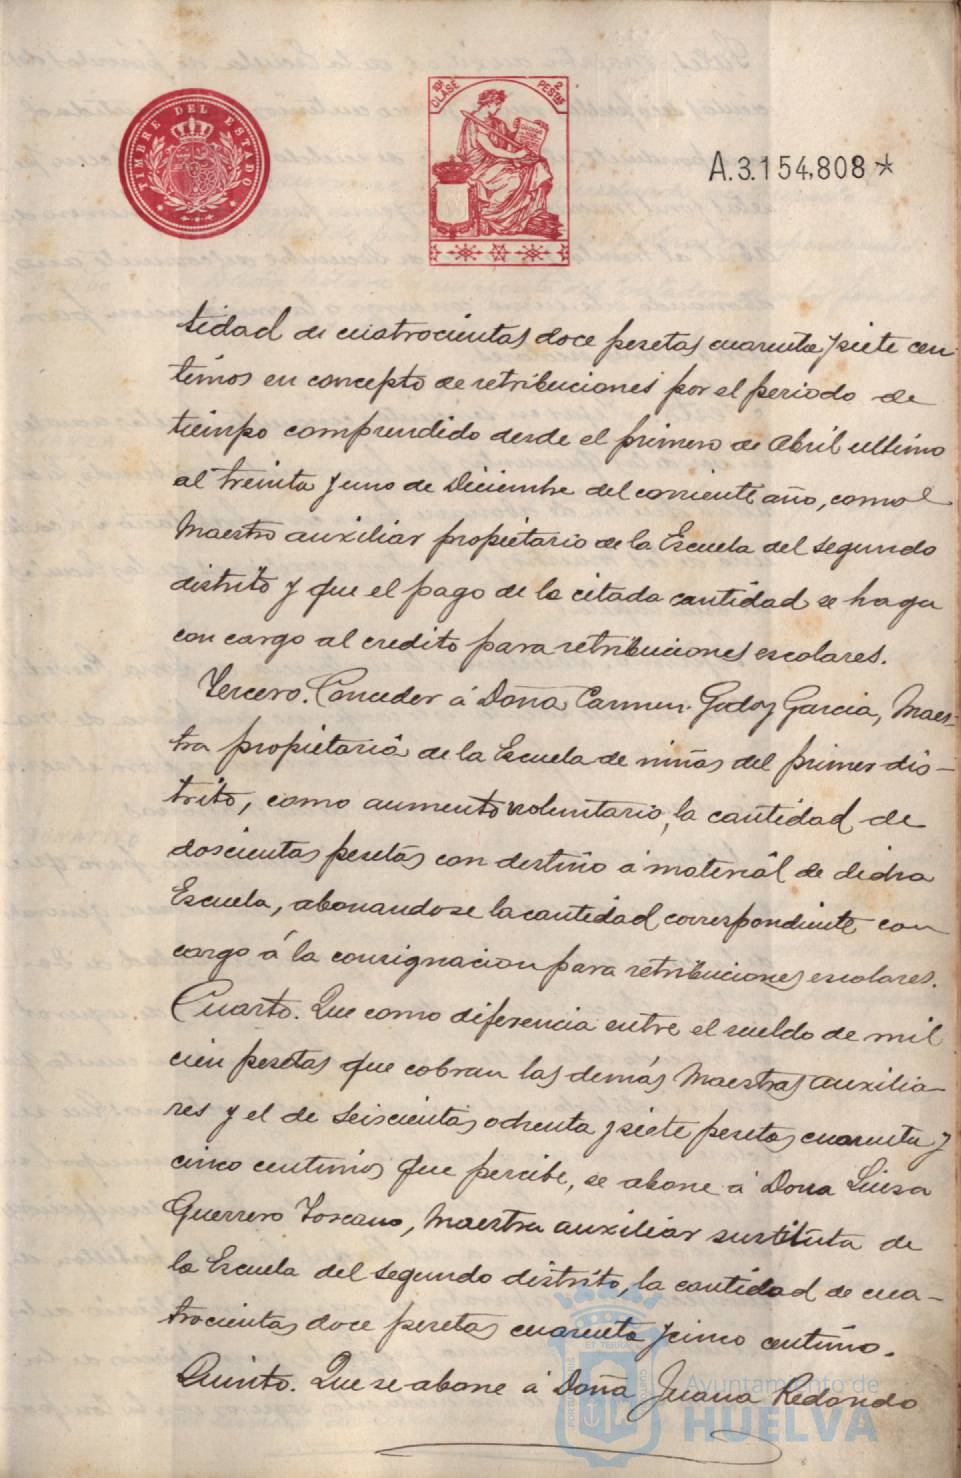 TIMBRE DEL ESTADO
10ª CLASE
2 PESTAS
A.3.154.808 *
tidad de cuatrocientas doce pesetas cuarenta y siete cen-
timos en concepto de retribuciones por el periodo de
tiempo comprendido desde el primero de Abril ultimo
al treinta y uno de Diciembre del corriente año, como
Maestro auxiliar propietario de la Escuela del segundo
distrito y que el pago de la citada cantidad se haga
con cargo al credito para retribuciones escolares.
Tercero. Conceder á Doña Carmen Godoy Garcia, Maes-
tra propietaria de la Escuela de niñas del primer dis-
trito, como aumento voluntario, la cantidad de
doscientas pesetas con destino á material de dicha
Escuela, abonandose la cantidad correspondiente con
cargo á la consignacion para retribuciones escolares.
Cuarto. Que como diferencia entre el sueldo de mil
cien pesetas que cobran las demás Maestras auxilia-
res y el de Seiscientas ochenta y siete pesetas cuarenta y
cinco centimos que percibe, se abone á Doña Luisa
Guerrero Toscano, Maestra auxiliar sustituta de
la Escuela del segundo distrito, la cantidad de cua-
trocientas doce pesetas cuarenta y cinco centimo.
Quinto. Que se abone á Doña Juana Redondo
Ayuntamiento de
HUELVA